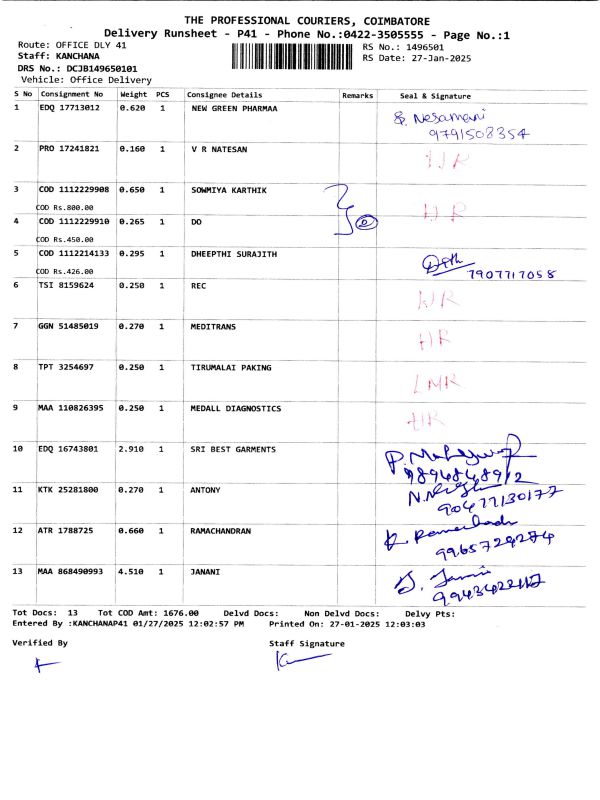 THE PROFESSIONAL COURIERS, COIMBATORE
Delivery Runsheet - P41 - Phone No.:0422-3505555 - Page No.:1
Route: OFFICE DLY 41
Staff: KANCHANA
DRS No.: DCJB149650101
Vehicle: Office Delivery
RS No.: 1496501
RS Date: 27-Jan-2025
S No Consignment No Weight PCS Consignee Details Remarks Seal & Signature
1 EDQ 17713012 0.620 1 NEW GREEN PHARMAA
S. Nesamani
9791508354
2 PRO 17241821 0.160 1 V R NATESAN
3 COD 1112229908 0.650 1 SOWMIYA KARTHIK
COD Rs.800.00
4 COD 1112229910 0.265 1 DO
COD Rs.450.00
5 COD 1112214133 0.295 1 DHEEPTHI SURAJITH
7907717058
COD Rs.426.00
6 TSI 8159624 0.250 1 REC
7 GGN 51485019 0.270 1 MEDITRANS
8 TPT 3254697 0.250 1 TIRUMALAI PAKING
9 MAA 110826395 0.250 1 MEDALL DIAGNOSTICS
10 EDQ 16743801 2.910 1 SRI BEST GARMENTS
9894848912
11 KTK 25281800 0.270 1 ANTONY
12 ATR 1788725 0.660 1 RAMACHANDRAN
13 MAA 868490993 4.510 1 JANANI
Tot Docs: 13 Tot COD Amt: 1676.00 Delvd Docs: Non Delvd Docs: Delvy Pts:
Entered By :KANCHANAP41 01/27/2025 12:02:57 PM Printed On: 27-01-2025 12:03:03
Verified By Staff Signature